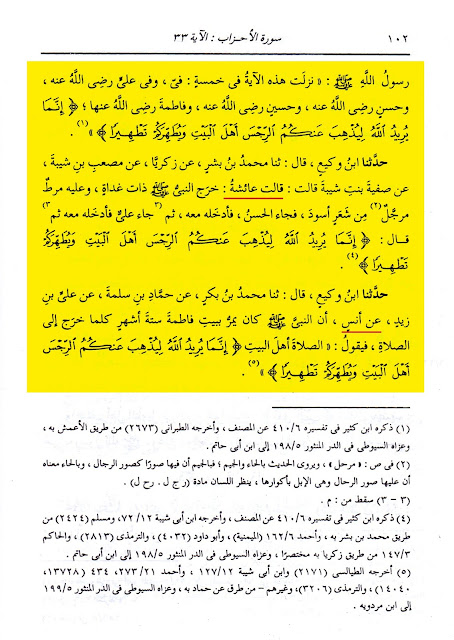 ١٠٢ سورة الأحزاب : الآية ٣٣
رسولُ اللَّهِ ﷺ : « نزلَت هذه الآيةُ فى خمسةٍ : فىَّ ، وفى علىٍّ رضى اللَّهُ عنه ،
وحسنٍ رضى اللَّهُ عنه ، وحسينٍ رضى اللَّهُ عنه ، وفاطمةَ رضى اللَّهُ عنها ؛ ﴿ إِنَّمَا
يُرِيدُ اللَّهُ لِيُذْهِبَ عَنكُمُ الرِّجْسَ أَهْلَ الْبَيْتِ وَيُطَهِّرَكُمْ تَطْهِيرًا ﴾ » (١) .
حدَّثنا ابنُ وكيعٍ ، قال : ثنا محمدُ بنُ بشرٍ ، عن زكريَّا ، عن مصعبِ بنِ شيبةَ ،
عن صفيةَ بنتِ شيبةَ قالت : قالت عائشةُ : خرَج النبىُّ ﷺ ذاتَ غداةٍ ، وعليه مِرطٌ
مرجَّلٌ (٢) مِن شَعَرٍ أسودَ ، فجاء الحسنُ ، فأدخَله معه ، ثم (٣) جاء علىٌّ فأدخَله معه ثم (٣)
قال : ﴿ إِنَّمَا يُرِيدُ اللَّهُ لِيُذْهِبَ عَنكُمُ الرِّجْسَ أَهْلَ الْبَيْتِ وَيُطَهِّرَكُمْ
تَطْهِيرًا ﴾ (٤) .
حدَّثنا ابنُ وكيعٍ ، قال : ثنا محمدُ بنُ بكرٍ ، عن حمَّادِ بنِ سلمةَ ، عن علىِّ بنِ
زيدٍ ، عن أنسٍ ، أن النبىَّ ﷺ كان يمرُّ ببيتِ فاطمةَ ستةَ أشهرٍ كلما خرَج إلى
الصلاةِ ، فيقولُ : « الصلاةَ أهلَ البيتِ ﴿ إِنَّمَا يُرِيدُ اللَّهُ لِيُذْهِبَ عَنكُمُ الرِّجْسَ
أَهْلَ الْبَيْتِ وَيُطَهِّرَكُمْ تَطْهِيرًا ﴾ » (٥) .
(١) ذكره ابن كثير فى تفسيره ٤١٠/٦ عن المصنف ، وأخرجه الطبرانى (٢٦٧٣) من طريق الأعمش به ،
وعزاه السيوطى فى الدر المنثور ١٩٨/٥ إلى ابن أبى حاتم .
(٢) فى ص : « مرحل » ، ويروى الحديث بالحاء والجيم ؛ فبالجيم أن فيها صورًا كصور الرجال ، وبالحاء معناه
أن عليها صور الرحال وهى الإبل بأكوارها ، ينظر اللسان مادة (ر ج ل . رح ل) .
(٣ - ٣) سقط من : م .
(٤) ذكره ابن كثير فى تفسيره ٤١٠/٦ عن المصنف ، وأخرجه ابن أبى شيبة ٧٢/١٢ ، ومسلم (٢٤٢٤) من
طريق محمد بن بشر به ، وأحمد ١٦٢/٦ (الميمنية) ، وأبو داود (٤٠٣٢) ، والترمذى (٢٨١٣) ، والحاكم
١٤٧/٣ من طريق زكريا به مختصرًا ، وعزاه السيوطى فى الدر المنثور ١٩٨/٥ إلى ابن أبى حاتم .
(٥) أخرجه الطيالسى (٢١٧١) وابن أبى شيبة ١٢٧/١٢ ، وأحمد ٢٧٣/٢١ ، ٤٣٤ (١٣٧٢٨ ،
١٤٠٤٠) ، والترمذى (٣٢٠٦) ، وغيرهم - من طرق عن حماد به ، وعزاه السيوطى فى الدر المنثور ١٩٩/٥
إلى ابن مردويه .